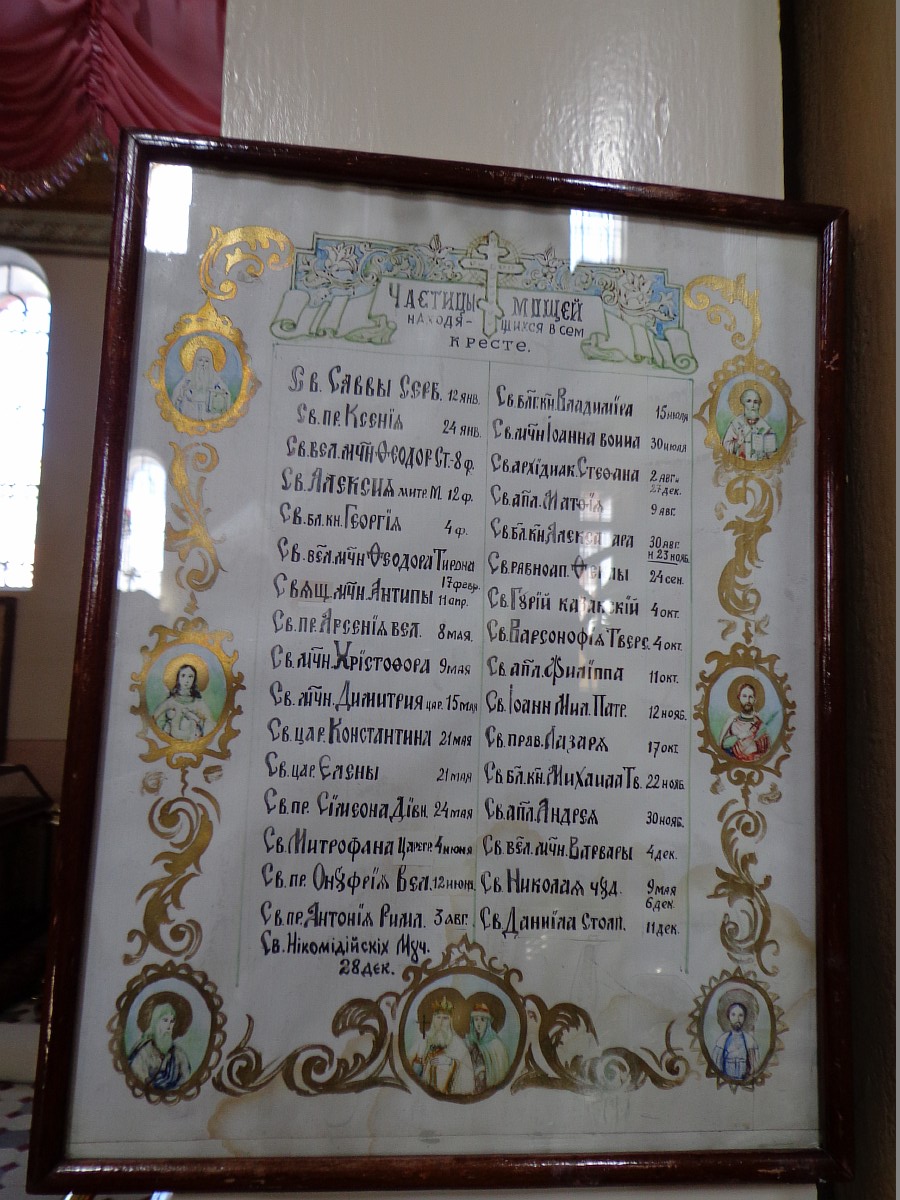 ЧАСТИЦЫ МОЩЕЙ
НАХОДЯ- ЩИХСЯ В СЕМ
КРЕСТЕ.
Св. Саввы Серб. 12 янв.
Св. пр. Ксенія 24 янв.
Св. вел. мчн. Ѳеодор Ст.-8 ф.
Св. Алексия митр. М. 12 ф.
Св. бл. кн. Георгія 4 ф.
Св. вел. мчн. Ѳеодора Тирона 17 февр.
Свящ. мчн. Антипы 11 апр.
Св. пр. Арсенія вел. 8 мая.
Св. мчн. Хрістофора 9 мая
Св. мчн. Димитрия цар. 15 мая
Св. цар. Константина 21 мая
Св. цар. Елены 21 мая
Св. пр. Сімеона Дівн. 24 мая
Св. Митрофана Царегр. 4 июня
Св. пр. Онуфрія Вел. 12 июня.
Св. пр. Антонія Римл. 3 авг.
Св. Нікомідійскіх Муч.
28 дек.
Св. блг. кн. Владиміра 15 июля
Св. мчн Іоанна воина 30 июля
Св. архідиак. Стефана 2 авг. 27 дек.
Св. апл. Матѳія 9 авг.
Св. бл. кн. Алекса ара 30 авг. и 23 нояб.
Св. равноап. Ѳеклы 24 сен.
Св. Гурій казанскій 4 окт.
Св. Варсонофія Тверс. 4 окт.
Св. апл. Филіппа 11 окт.
Св. Іоанн Мил. Патр. 12 нояб.
Св. прав. Лазаря 17 окт.
Св. бл. кн. Михаила Тв. 22 нояб.
Св. апл. Андрея 30 нояб.
Св. вел. мчн. Варвары 4 дек.
Св. Николая чуд. 9 мая 6 дек.
Св. Даниіла столп. 11 дек.